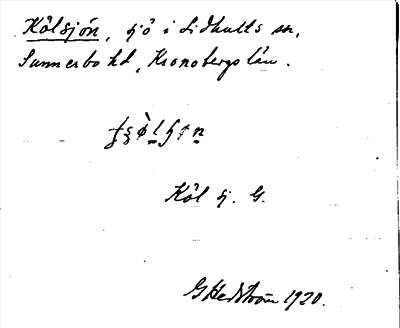 Kölsjön, sjö i Lidhults sn,
Sunnerbo hd, Kronobergs län.
Köl sj. G.
G Hedström 1920.